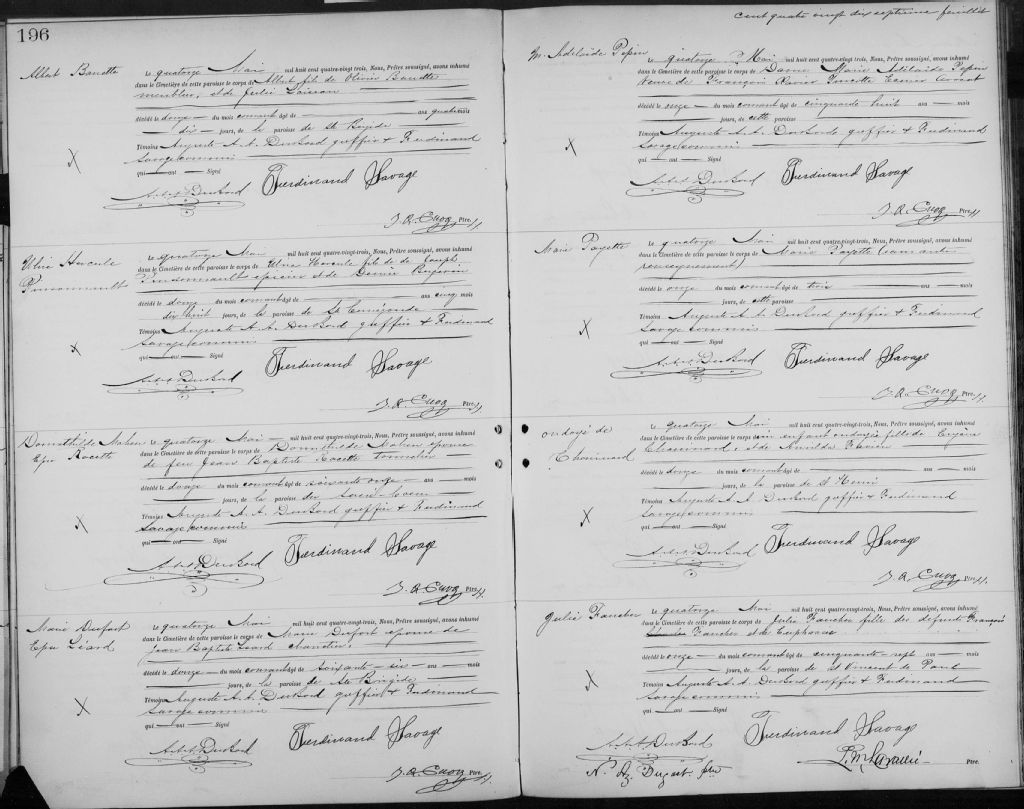 196
Albert Banette
Le quatorze Mai mil huit cent quatre-vingt-trois, Nous, Prêtre soussigné, avons inhumé
dans le Cimetière de cette paroisse le corps de Albert fils de Olivier Banette
meublier, et de Julie Loiseau
décédé le douze du mois courant âgé de ans quatre mois
dix jours, de la paroisse de Ste Brigide
Témoins Auguste A. A. DuBord greffier & Ferdinand
Savage commis
qui ont Signé
A. A. A. DuBord Ferdinand Savage
J. A. Cuoq Ptre.
Ulric Hercule
Pinsonnault
Le quatorze Mai mil huit cent quatre-vingt-trois, Nous, Prêtre soussigné, avons inhumé
dans le Cimetière de cette paroisse le corps de Ulric Hercule fils de de Joseph
Pinsonnault épicier et de
décédé le douze du mois courant âgé de ans cinq mois
dix huit jours, de la paroisse de Ste Cunégonde
Témoins Auguste A. A. DuBord greffier & Ferdinand
Savage commis
qui ont Signé
A. A. A. DuBord Ferdinand Savage
J. A. Cuoq Ptre.
Domithilde Maheu
Epse Racette
Le quatorze Mai mil huit cent quatre-vingt-trois, Nous, Prêtre soussigné, avons inhumé
dans le Cimetière de cette paroisse le corps de Domithilde Maheu épouse
de feu Jean Baptiste Racette Tonnelier
décédé le douze du mois courant âgé de soixante onze ans mois
jours, de la paroisse du Sacré-Coeur
Témoins Auguste A. A. DuBord greffier & Ferdinand
Savage commis
qui ont Signé
A. A. A. DuBord Ferdinand Savage
J. A. Cuoq Ptre.
Marie Dufort
Epse Léard
Le quatorze Mai mil huit cent quatre-vingt-trois, Nous, Prêtre soussigné, avons inhumé
dans le Cimetière de cette paroisse le corps de Marie Dufort épouse de
Jean Baptiste Léard charretier
décédé le douze du mois courant âgé de soixante six ans mois
jours, de la paroisse de Ste Brigide
Témoins Auguste A. A. DuBord greffier & Ferdinand
Savage commis
qui ont Signé
A. A. A. DuBord Ferdinand Savage
J. A. Cuoq Ptre.
Cent quatre vingt dix septième feuillet
M. Adelaide Pepin
Le quatorze Mai mil huit cent quatre-vingt-trois, Nous, Prêtre soussigné, avons inhumé
dans le Cimetière de cette paroisse le corps de Dame Marie Adelaide Pepin
Veuve de François Xavier
décédé le onze du mois courant âgé de cinquante huit ans mois
jours, de cette paroisse
Témoins Auguste A. A. DuBord greffier & Ferdinand
Savage commis
qui ont Signé
A. A. A. DuBord Ferdinand Savage
J. A. Cuoq Ptre.
Marie Payette
Le quatorze Mai mil huit cent quatre-vingt-trois, Nous, Prêtre soussigné, avons inhumé
dans le Cimetière de cette paroisse le corps de Marie Payette (sans autre
renseignement)
décédé le onze du mois courant âgé de trois ans mois
jours, de cette paroisse
Témoins Auguste A. A. DuBord greffier & Ferdinand
Savage commis
qui ont Signé
A. A. A. DuBord Ferdinand Savage
J. A. Cuoq Ptre.
ondoyé de
Chouinard
Le quatorze Mai mil huit cent quatre-vingt-trois, Nous, Prêtre soussigné, avons inhumé
dans le Cimetière de cette paroisse le corps d'un enfant ondoyée fille de Eugène
Chouinard, et de
décédé le douze du mois courant âgé de
jours, de la paroisse de St Henri
Témoins Auguste A. A. DuBord greffier & Ferdinand
Savage commis
qui ont Signé
A. A. A. DuBord Ferdinand Savage
J. A. Cuoq Ptre.
Julie Faucher
Le quatorze Mai mil huit cent quatre-vingt-trois, Nous, Prêtre soussigné, avons inhumé
dans le Cimetière de cette paroisse le corps de Julie Faucher fille des défunts François
Faucher et de Euphrasie
décédé le onze du mois courant âgé de cinquante sept ans mois
jours, de la paroisse de St Vincent de Paul
Témoins Auguste A. A. DuBord greffier & Ferdinand
Savage commis
qui ont Signé
A. A. A. DuBord Ferdinand Savage
Ptre.